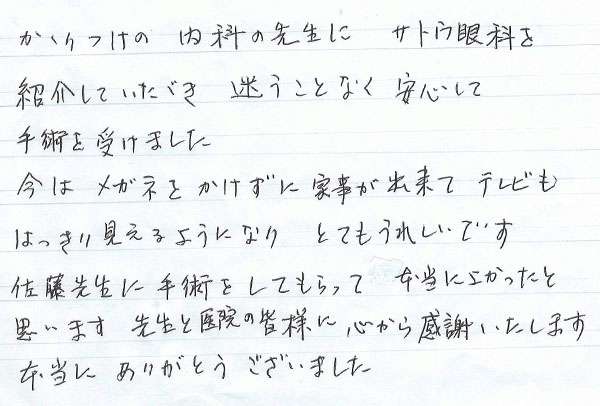 かかりつけの 内科の先生に サトウ眼科を
紹介していただき 迷うことなく 安心して
手術を受けました
今は メガネを かけずに 家事が 出来て テレビも
はっきり見えるようになり とてもうれしいです
佐藤先生に 手術を してもらって 本当によかったと
思います 先生と医院の皆様に 心から感謝いたします
本当に ありがとう ございました